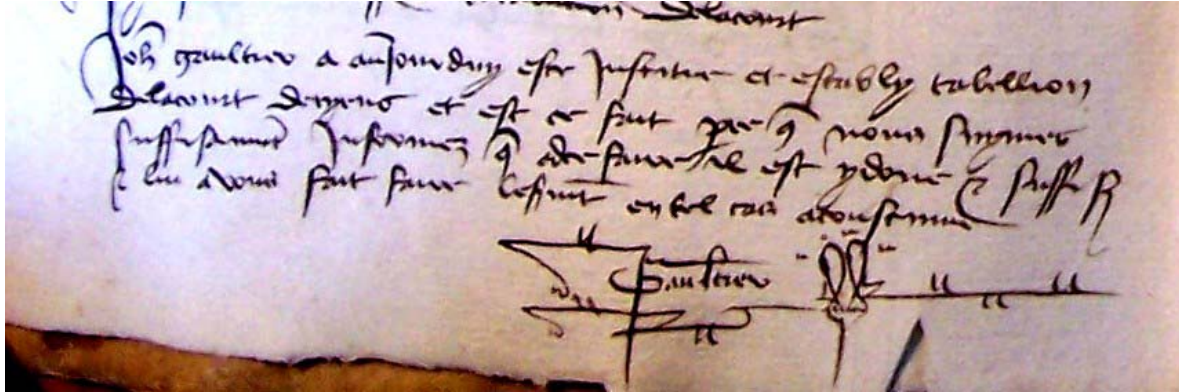 Delacourt
Joh gaultier a aujourduy este Institue et estably tabellion
Delacourt et est ce fait par q nous sommes
suffisamnt Informez q adce faire Il est ydone & suffis
& luy avons fait faire le sermt en tel cas acoustume
Gaultier